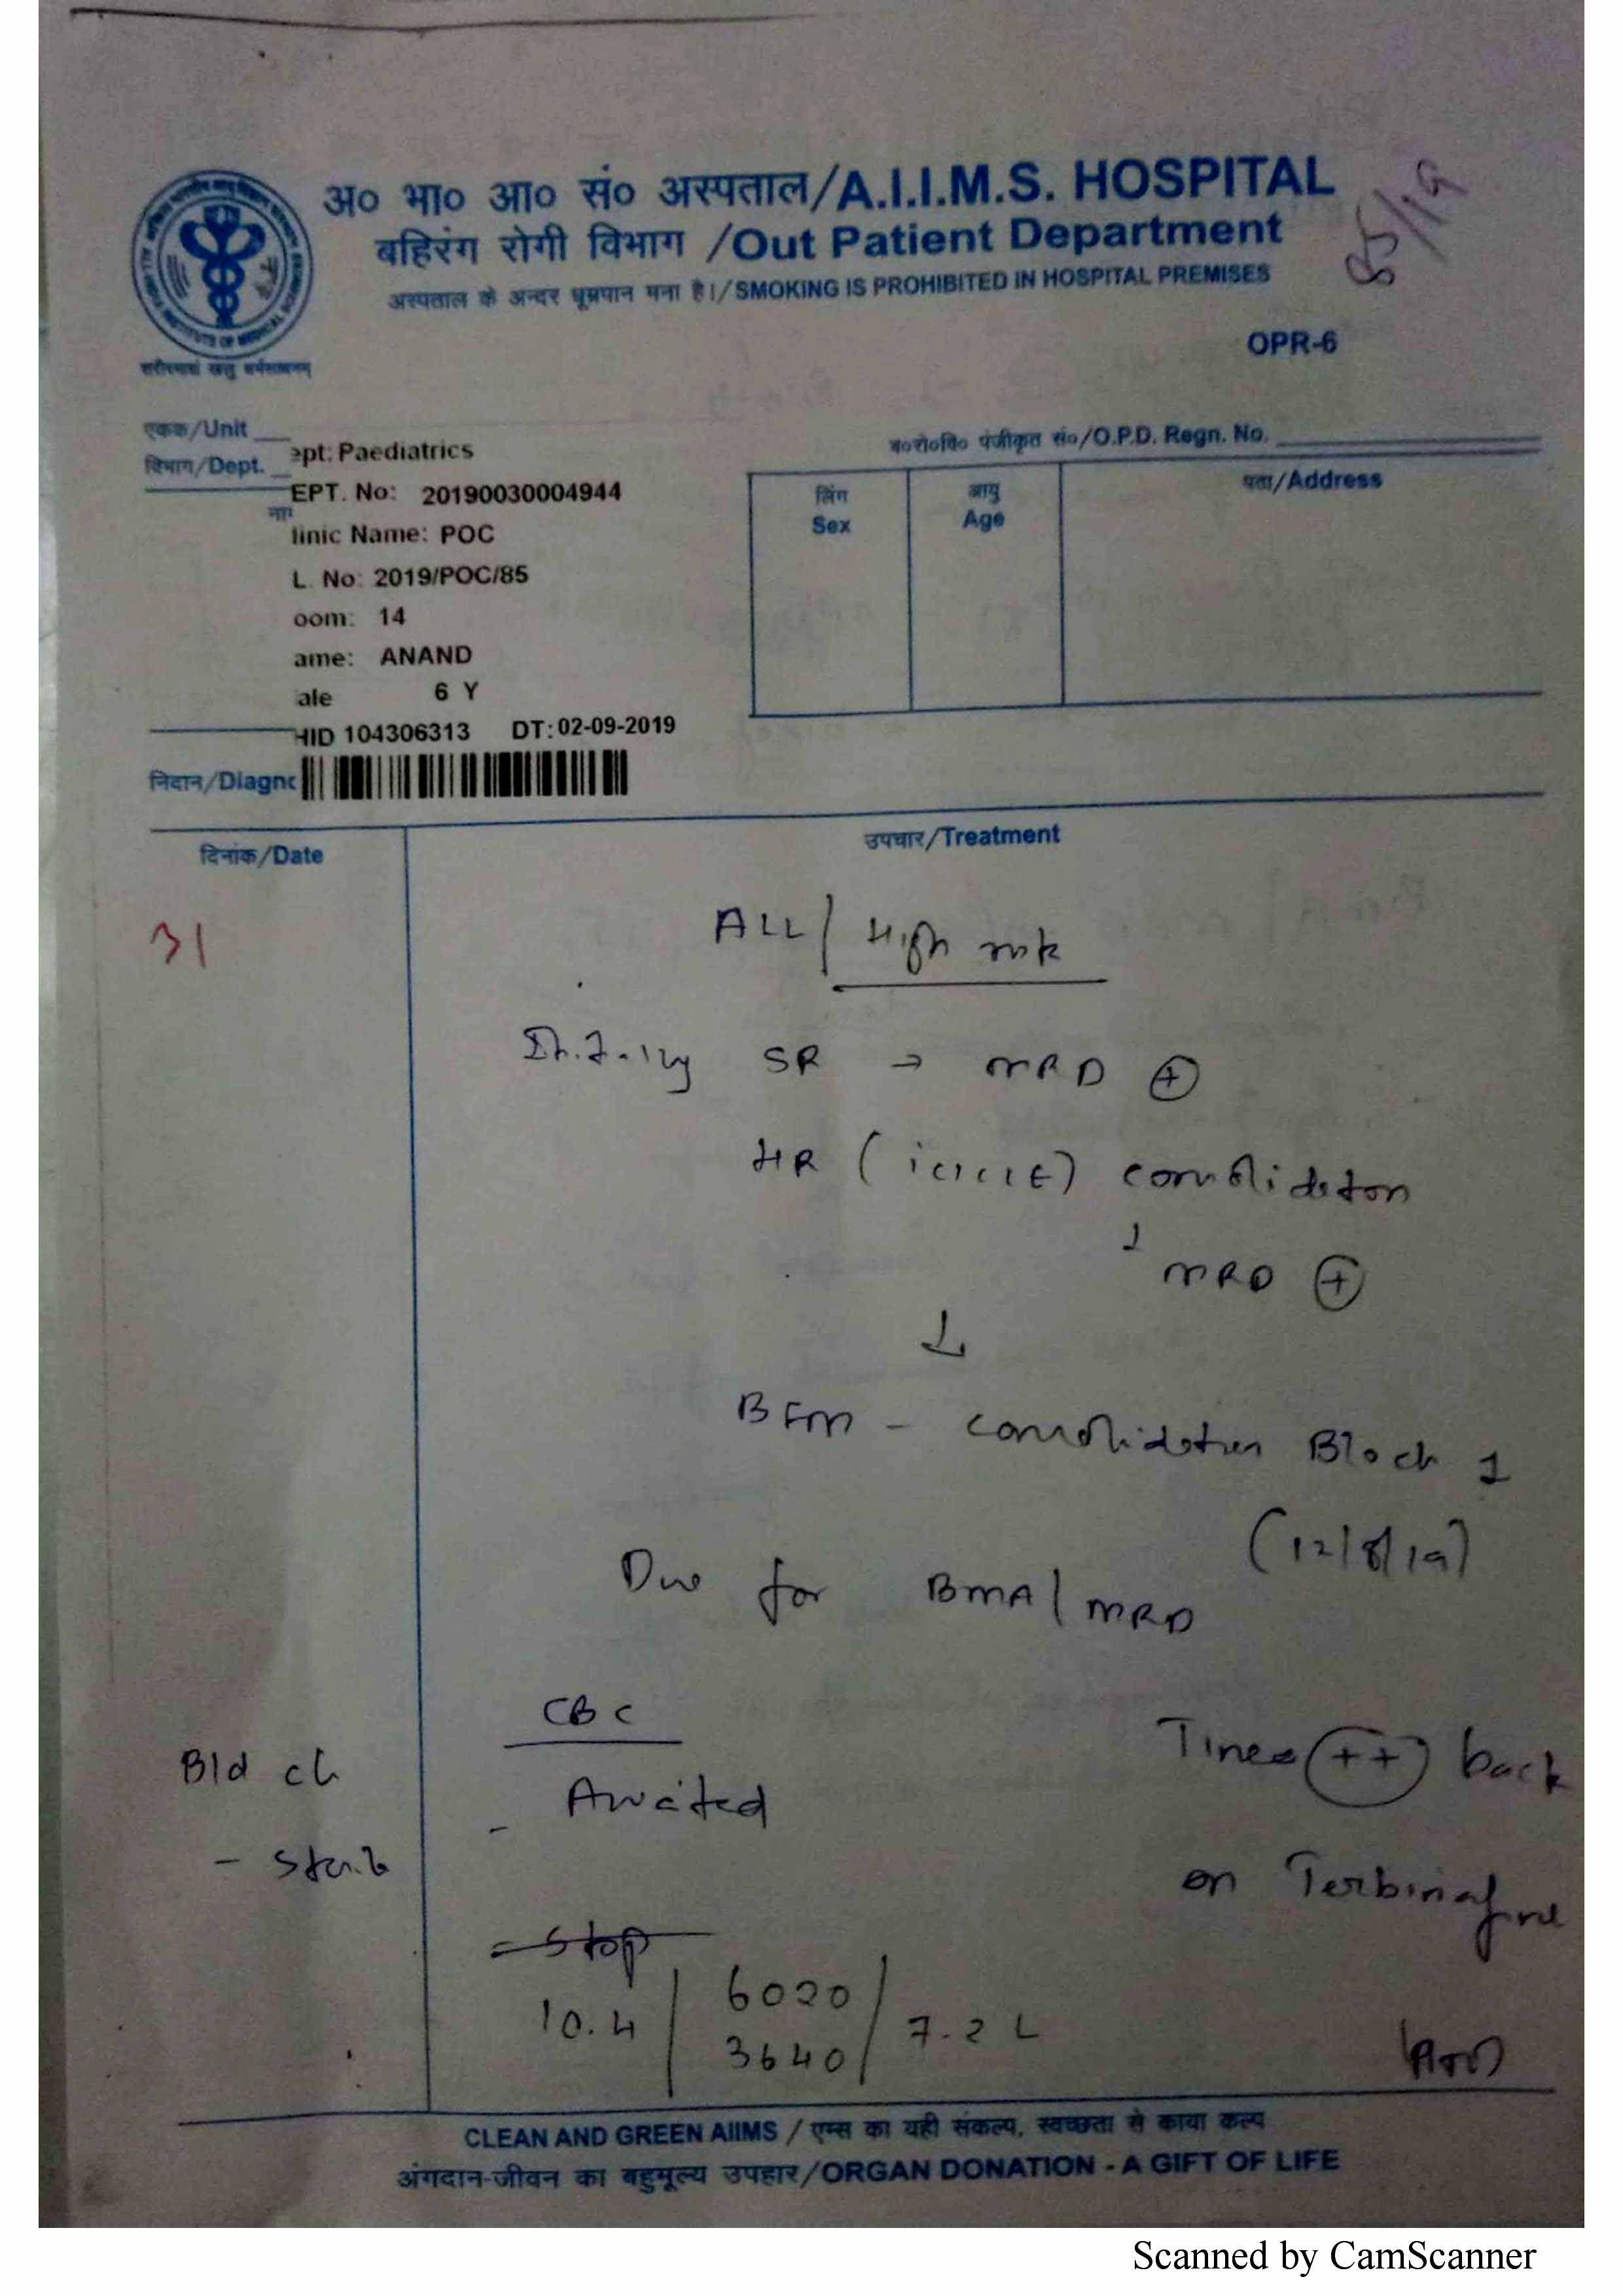 85/19
अ० भा० आ० सं० अस्पताल/A.I.I.M.S. HOSPITAL
बहिरंग रोगी विभाग /Out Patient Department
अस्पताल के अन्दर धूम्रपान मना है।/SMOKING IS PROHIBITED IN HOSPITAL PREMISES
OPR-6
शरीरमाद्यं खलु धर्मसाधनम्
एकक/Unit
विभाग/Dept.
ept: Paediatrics
ब०रो०वि० पंजीकृत सं०/O.P.D. Regn. No.
EPT. No: 20190030004944
linic Name: POC
L. No: 2019/POC/85
oom: 14
ame: ANAND
ale 6 Y
HID 104306313 DT: 02-09-2019
लिंग
Sex
आयु
Age
पता/Address
निदान/Diagno
दिनांक/Date
उपचार/Treatment
31
ALL/ High risk
SR → MRD ⊕
HR ( ) consolidation
↓
MRD ⊕
↓
BFM - consolidation Block 1
(12/8/19)
Due for BMA/MRD
CBC
- Awaited
Tinea (++) back
on Terbinafine
Bld c/s
- Sterile
- Stop
10.4 / 6020 / 7.2 L
3640
CLEAN AND GREEN AIIMS / एम्स का यही संकल्प, स्वच्छता से काया कल्प
अंगदान-जीवन का बहुमूल्य उपहार/ORGAN DONATION - A GIFT OF LIFE
Scanned by CamScanner